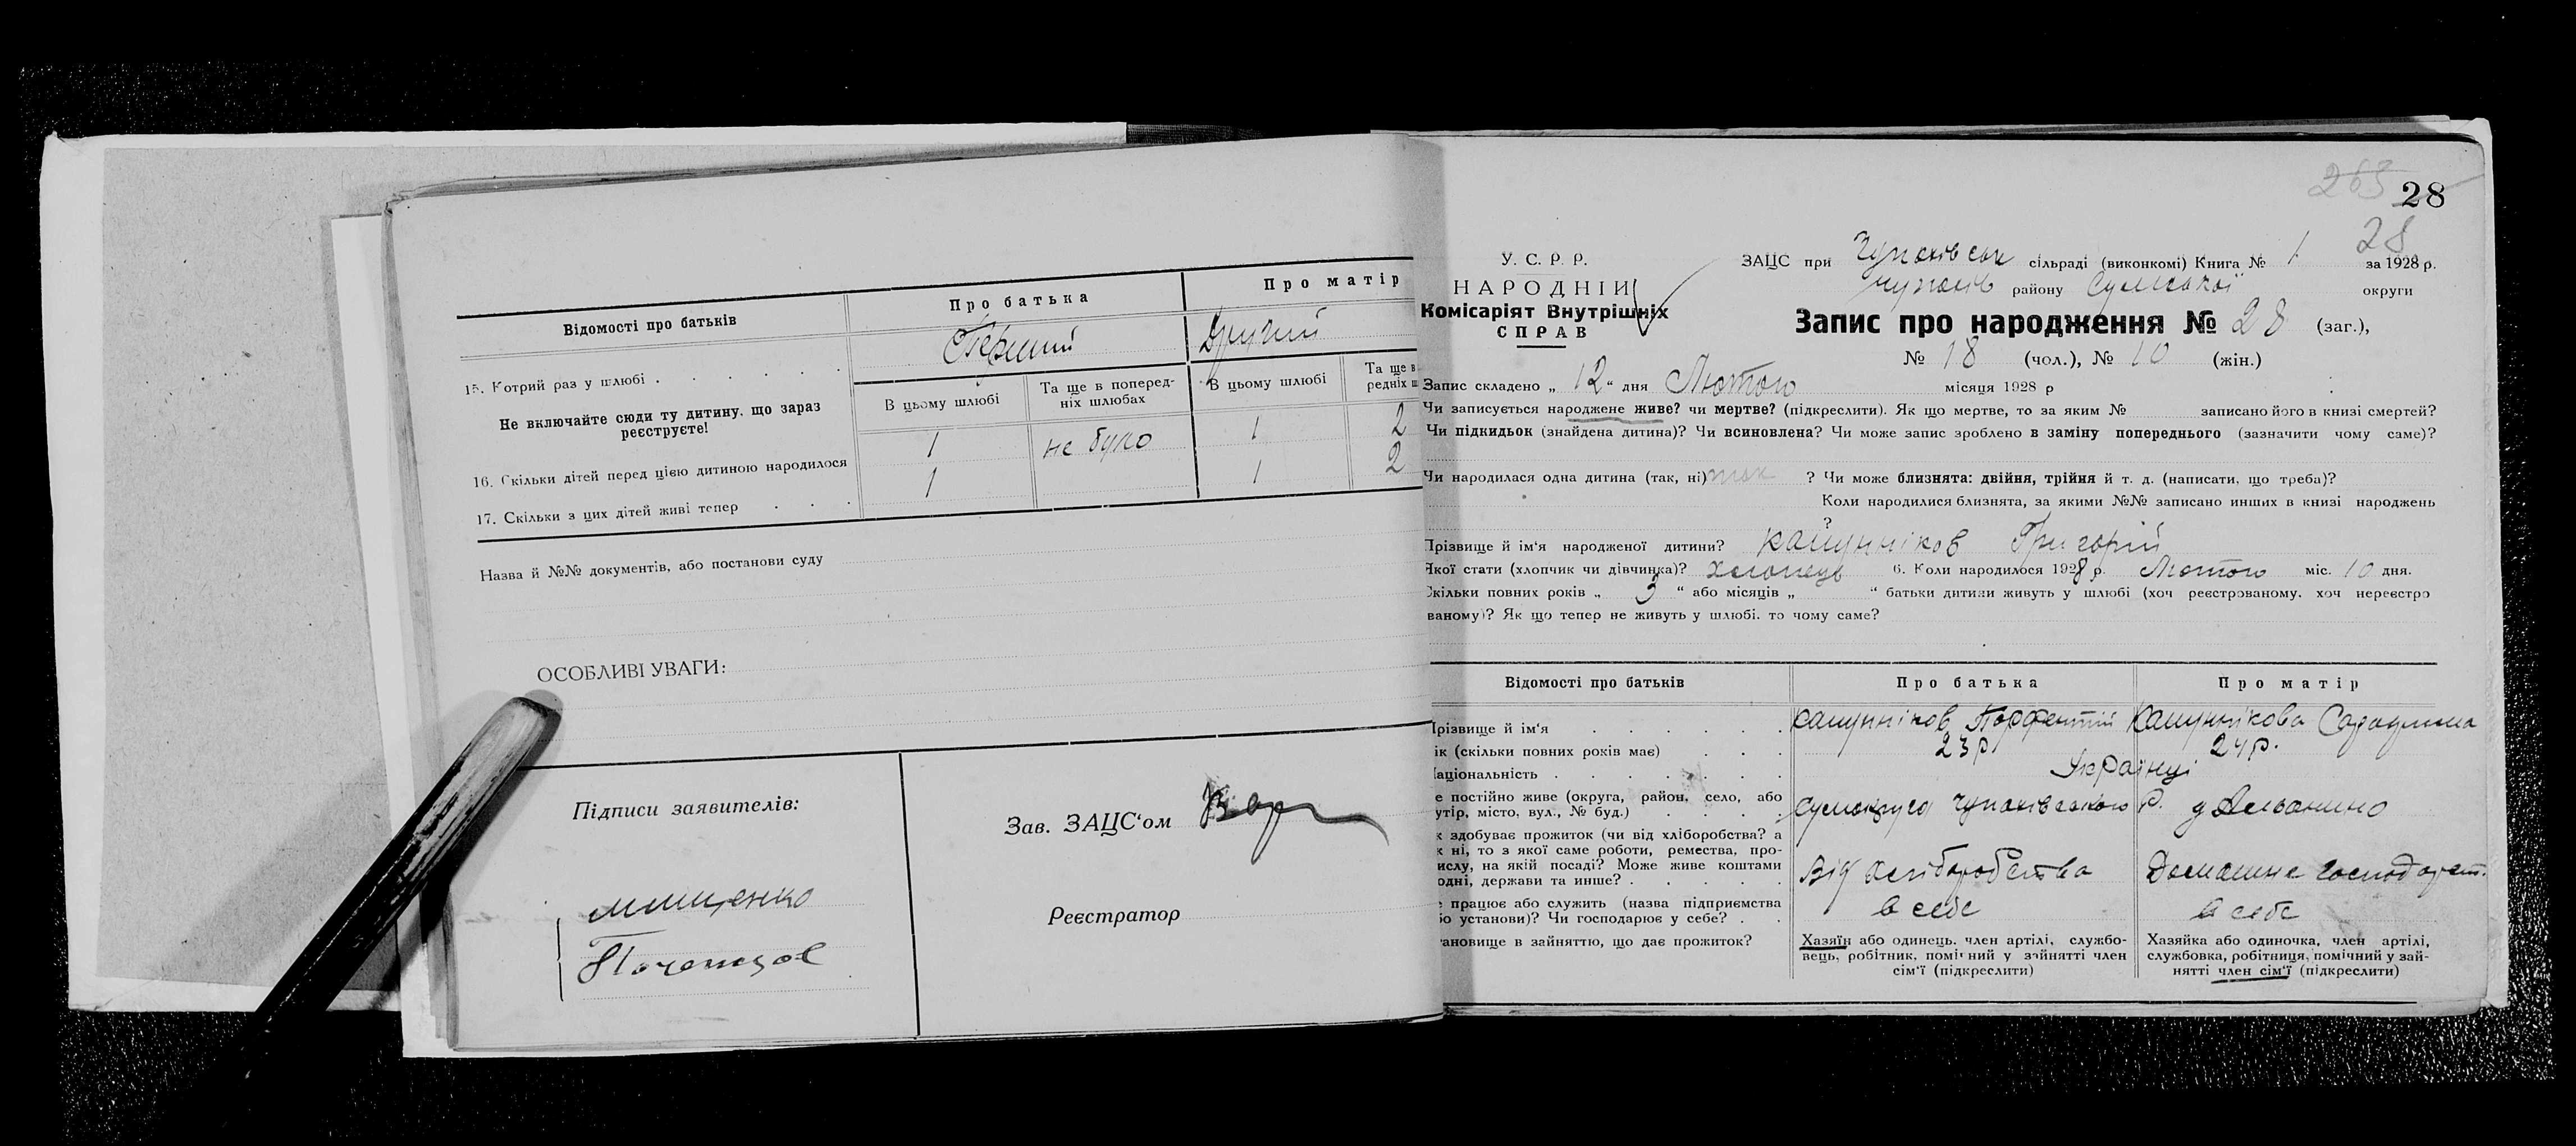 Відомості про батьків
Про батька
Про матір
15. Котрий раз у шлюбі
Перший
Другий
Не включайте сюди ту дитину, що зараз реєструєте!
В цьому шлюбі
Та ще в поперед-
ніх шлюбах
В цьому шлюбі
Та ще в
редніх ш
16. Скільки дітей перед цією дитиною народилося
1
не було
1
2
17. Скільки з цих дітей живі тепер
1
1
2
Назва й №№ документів, або постанови суду
ОСОБЛИВІ УВАГИ:
Підписи заявителів:
Зав. ЗАЦС'ом
Реєстратор
Мищенко
265
28
28
У. С. Р. Р.
НАРОДНІЙ
Комісаріят Внутрішніх
СПРАВ
ЗАЦС при Чупахівськ сільраді (виконкомі) Книга № 1 за 1928 р.
Чупахів району Сумської округи
Запис про народження № 28 (заг.),
№ 18 (чол.), № 10 (жін.)
Запис складено „ 12 “ дня Лютого місяця 1928 р
Чи записується народжене живе? чи мертве? (підкреслити). Як що мертве, то за яким № записано його в книзі смертей?
Чи підкидьок (знайдена дитина)? Чи всиновлена? Чи може запис зроблено в заміну попереднього (зазначити чому саме)?
Чи народилася одна дитина (так, ні) так ? Чи може близнята: двійня, трійня й т. д. (написати, що треба)?
Коли народилися близнята, за якими №№ записано инших в книзі народжень
?
Прізвище й ім'я народженої дитини? Григорій
Якої стати (хлопчик чи дівчинка)? хлопець 6. Коли народилося 1928 р. Лютого міс. 10 дня.
Скільки повних років „ 3 “ або місяців „ “ батьки дитини живуть у шлюбі (хоч реєстрованому, хоч нереєстро
ваному)? Як що тепер не живуть у шлюбі, то чому саме?
Відомості про батьків
Про батька
Про матір
Прізвище й ім'я
ік (скільки повних років має)
23 р
24 р.
Національність
Українці
е постійно живе (округа, район, село, або
утір, місто, вул., № буд.)
Сумокруга Чупахівського р.
к здобуває прожиток (чи від хліборобства? а
к ні, то з якої саме роботи, ремества, про-
мислу, на якій посаді? Може живе коштами
одні, держави та инше?
Від хліборобства
Домашнє господарст.
е працює або служить (назва підприємства
бо установи)? Чи господарює у себе?
в себе
в себе
тановище в зайняттю, що дає прожиток?
Хазяїн або одинець, член артілі, службо-
вець, робітник, помічний у зайнятті член
сім'ї (підкреслити)
Хазяйка або одиночка, член артілі,
службовка, робітниця, помічний у зай-
нятті член сім'ї (підкреслити)